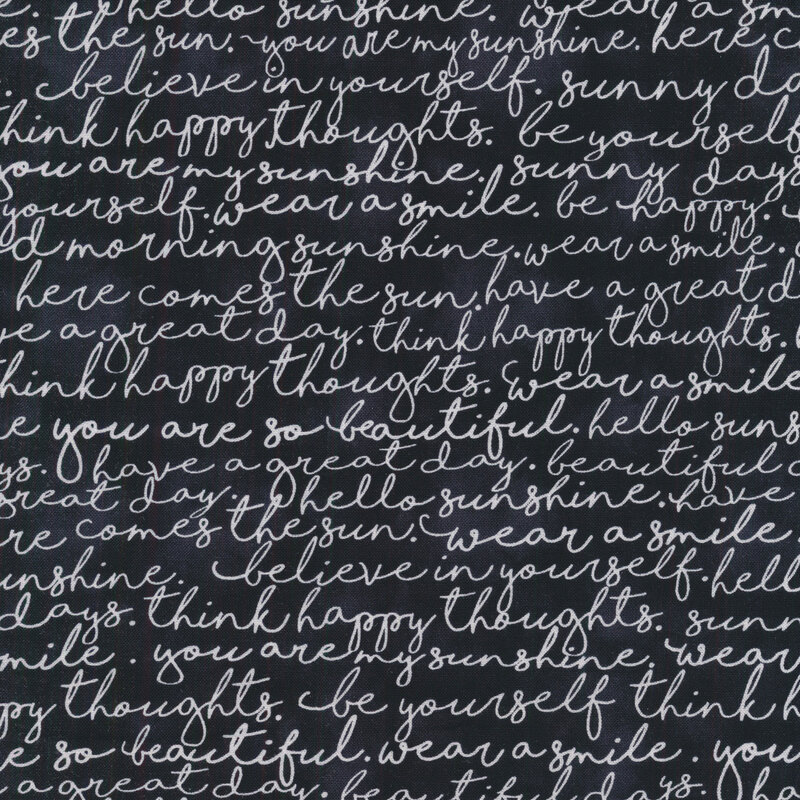 hello sunshine. wear a sm
es the sun. you are my sunshine. here c
. believe in yourself. sunny da
hink happy thoughts. be yourself
you are my sunshine. sunny days
yourself. wear a smile. be happy.
d morning sunshine. wear a smile.
here comes the sun. have a great d
ve a great day. think happy thoughts.
hink happy thoughts. wear a smile
e you are so beautiful. hello suns
ys. have a great day. beautiful d
great day. hello sunshine. have
re comes the sun. wear a smile.
unshine. believe in yourself. hell
days. think happy thoughts. sunn
mile. you are my sunshine. wear
py thoughts. be yourself think h
e so beautiful. wear a smile. you
a great day. beautiful days. ha